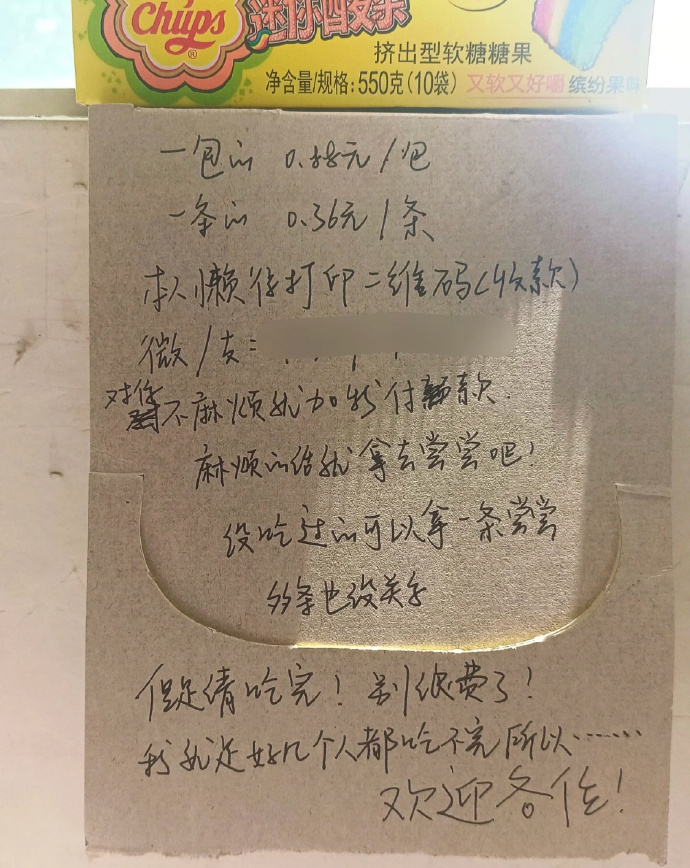 Chups
迷你酸条
挤出型软糖糖果
净含量/规格:550克(10袋) 又软又好嚼 缤纷果味
一包的 0.88元/包
一条的 0.36元/条
本人懒得打印二维码(收款)
微/支:
不麻烦就加我付款.
麻烦的话就拿去尝尝吧!
没吃过的可以拿一条尝尝
多条也没关系
但是请吃完!别浪费了!
我就是好几个人都吃不完所以……
欢迎各位!